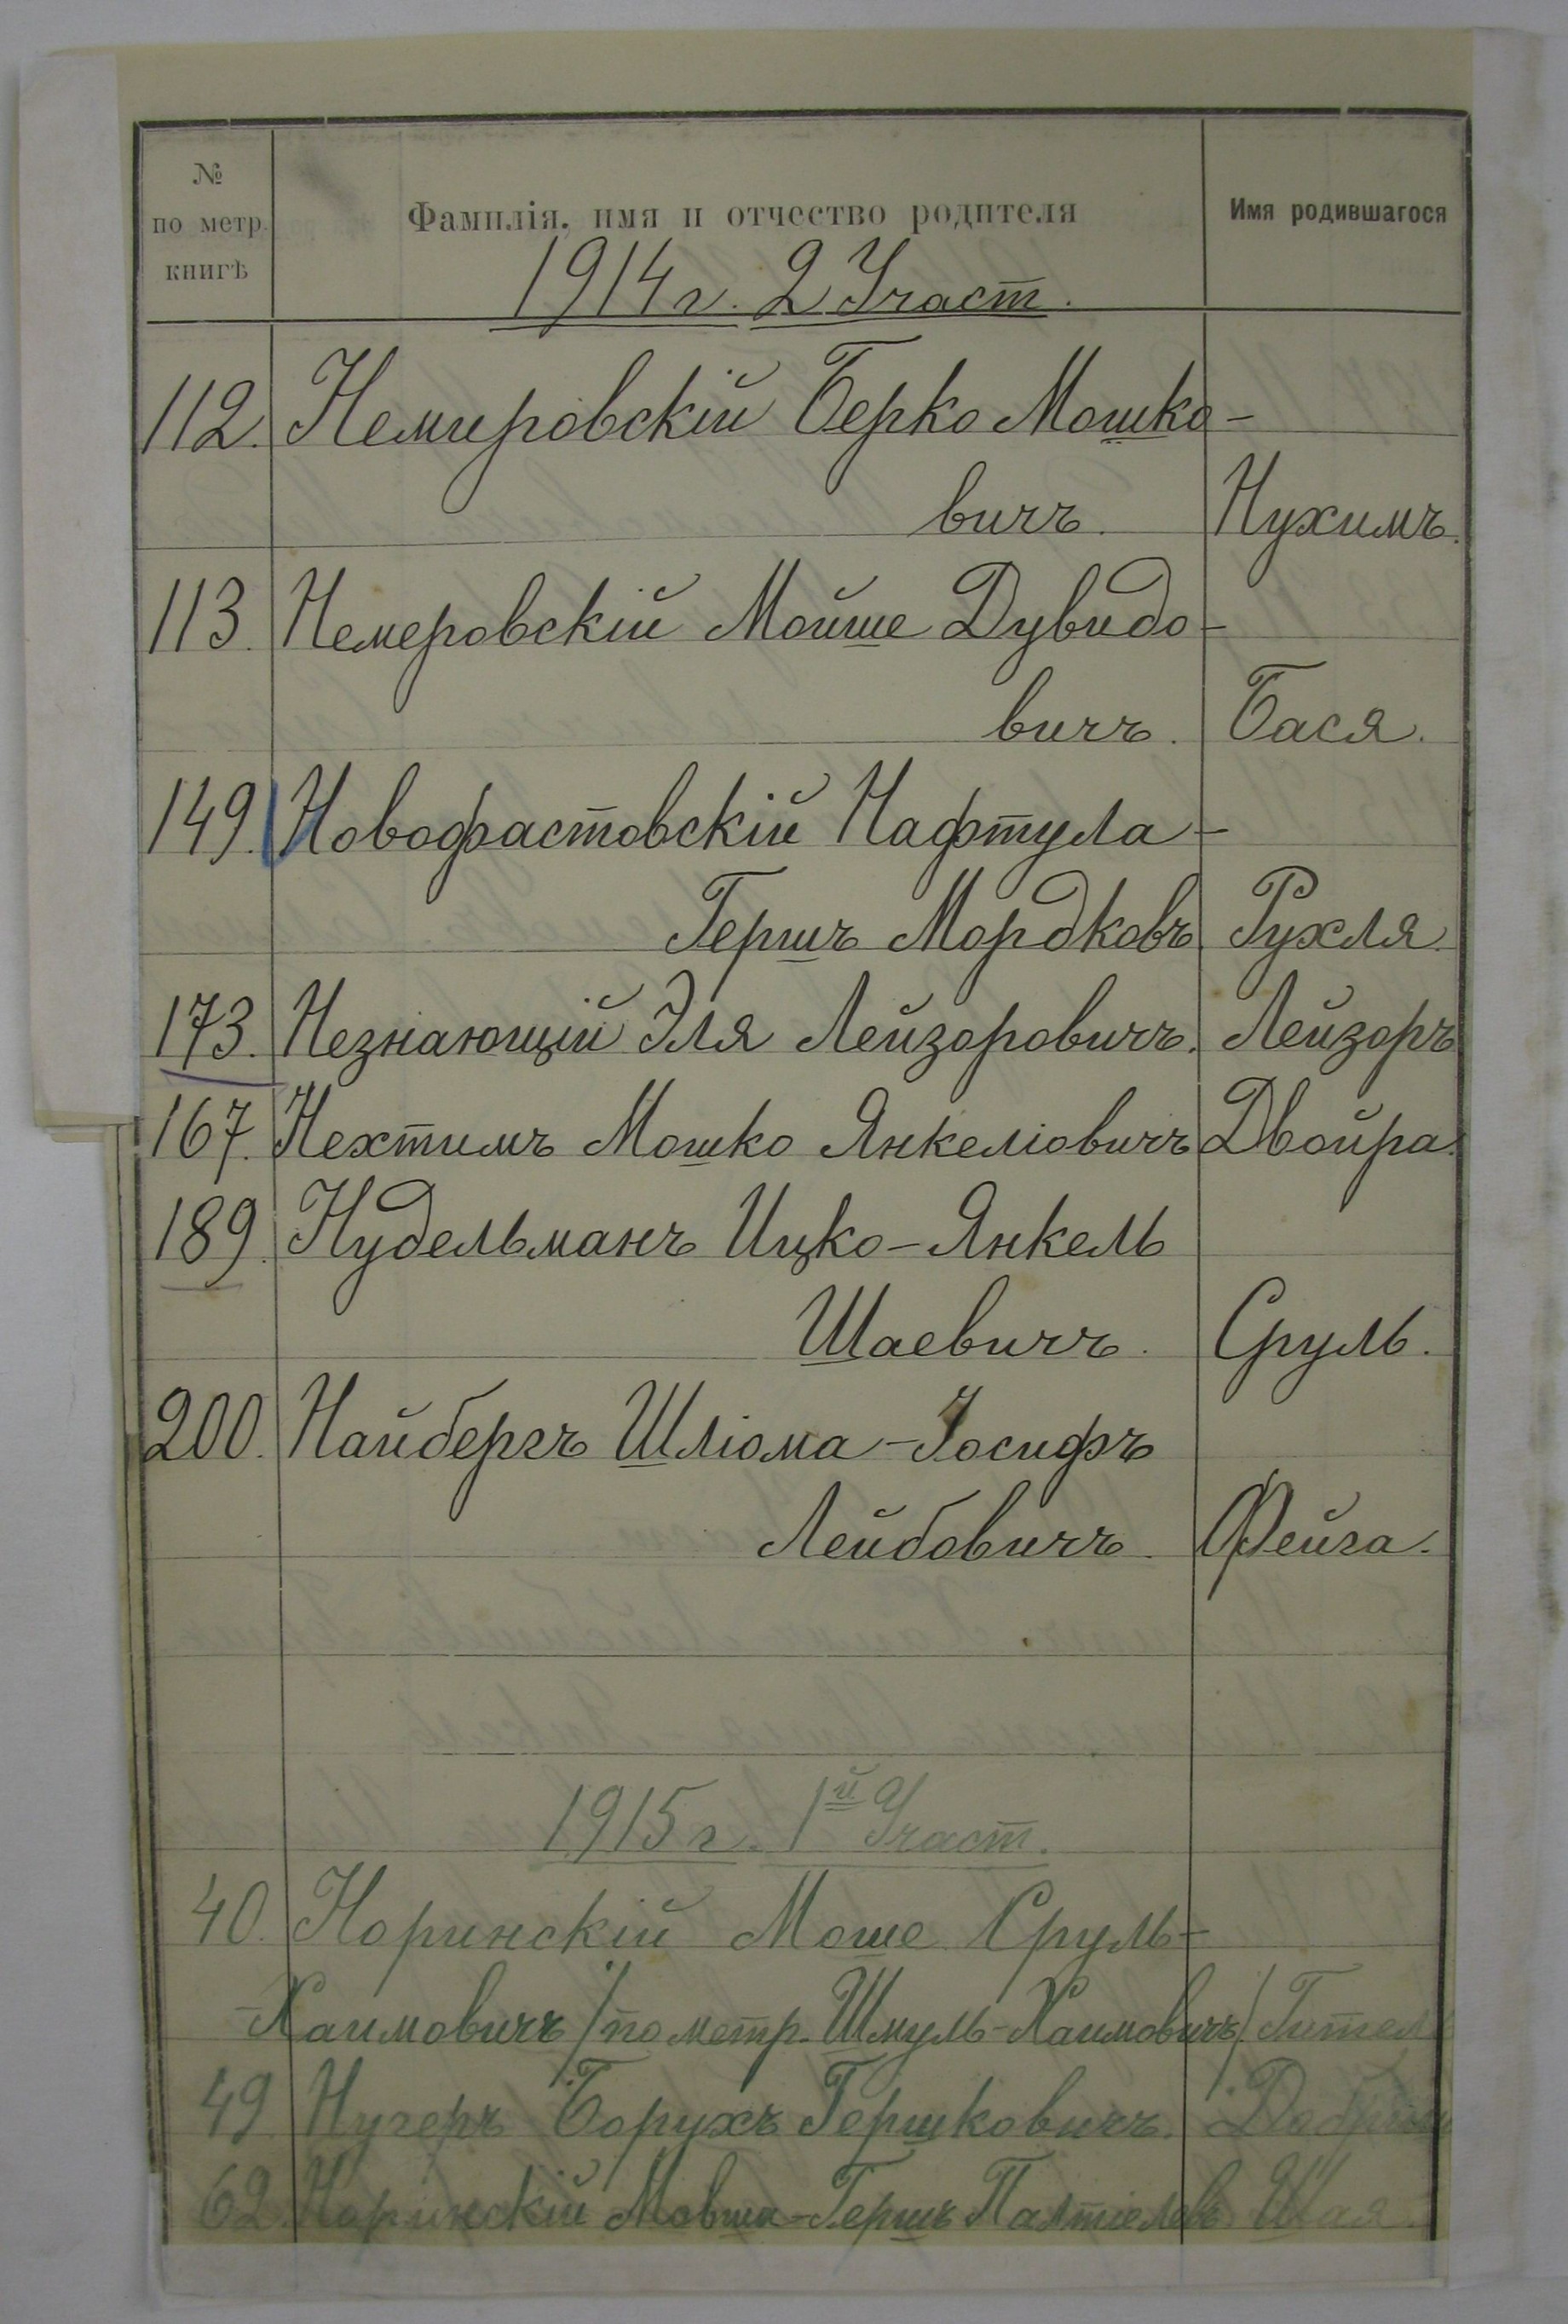 №
по метр.
книгѣ
Фамилія, имя и отчество родителя
Имя родившагося
1914 г. 2 Участ.
112. Немировскій Берко Мошко-
вичъ. Нухимъ.
113. Немеровскій Мойше Дувидо-
вичъ. Бася.
149. Новофастовскій Нафтула-
Гершъ Мордковъ Рухля.
173. Незнающій Эля Лейзоровичъ. Лейзоръ
167. Нехтимъ Мошко Янкеліовичъ Двойра.
189. Нудельманъ Ицко-Янкель
Шаевичъ. Сруль.
200. Найбергъ Шліома-Іосифъ
Лейбовичъ. Фейга.
1915 г. 1й Участ.
40. Норинскій Моше Сруль-
-Хаимовичъ /по метр. Шмуль-Хаимовичъ/ Гитель
49 Нугеръ Борухъ Гершковичъ.
62. Норинскій Мовша-Гершъ Палтіелевъ Шая